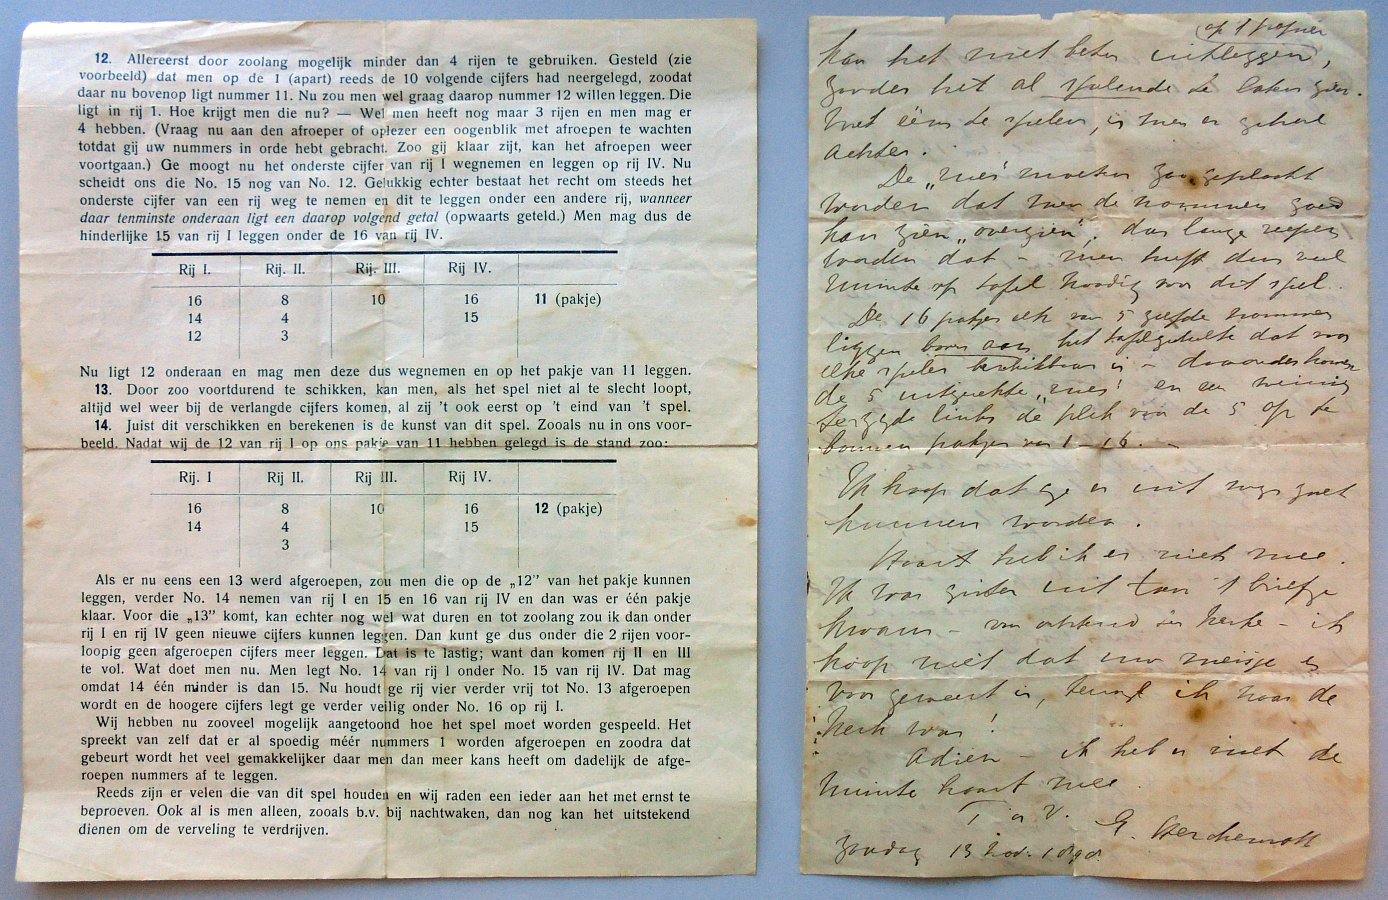 12. Allereerst door zoolang mogelijk minder dan 4 rijen te gebruiken. Gesteld (zie
voorbeeld) dat men op de 1 (apart) reeds de 10 volgende cijfers had neergelegd, zoodat
daar nu bovenop ligt nummer 11. Nu zou men wel graag daarop nummer 12 willen leggen. Die
ligt in rij 1. Hoe krijgt men die nu? — Wel men heeft nog maar 3 rijen en men mag er
4 hebben. (Vraag nu aan den afroeper of oplezer een oogenblik met afroepen te wachten
totdat gij uw nummers in orde hebt gebracht. Zoo gij klaar zijt, kan het afroepen weer
voortgaan.) Ge moogt nu het onderste cijfer van rij I wegnemen en leggen op rij IV. Nu
scheidt ons die No. 15 nog van No. 12. Gelukkig echter bestaat het recht om steeds het
onderste cijfer van een rij weg te nemen en dit te leggen onder een andere rij, wanneer
daar tenminste onderaan ligt een daarop volgend getal (opwaarts geteld.) Men mag dus de
hinderlijke 15 van rij I leggen onder de 16 van rij IV.
Rij I. Rij. II. Rij. III. Rij IV.
16 8 10 16 11 (pakje)
14 4 15
12 3
Nu ligt 12 onderaan en mag men deze dus wegnemen en op het pakje van 11 leggen.
13. Door zoo voortdurend te schikken, kan men, als het spel niet al te slecht loopt,
altijd wel weer bij de verlangde cijfers komen, al zij 't ook eerst op 't eind van 't spel.
14. Juist dit verschikken en berekenen is de kunst van dit spel. Zooals nu in ons voor-
beeld. Nadat wij de 12 van rij I op ons pakje van 11 hebben gelegd is de stand zoo:
Rij. I Rij II. Rij III. Rij IV.
16 8 10 16 12 (pakje)
14 4 15
3
Als er nu eens een 13 werd afgeroepen, zou men die op de „12” van het pakje kunnen
leggen, verder No. 14 nemen van rij I en 15 en 16 van rij IV en dan was er één pakje
klaar. Voor die „13” komt, kan echter nog wel wat duren en tot zoolang zou ik dan onder
rij I en rij IV geen nieuwe cijfers kunnen leggen. Dan kunt ge dus onder die 2 rijen voor-
loopig geen afgeroepen cijfers meer leggen. Dat is te lastig; want dan komen rij II en III
te vol. Wat doet men nu. Men legt No. 14 van rij I onder No. 15 van rij IV. Dat mag
omdat 14 één minder is dan 15. Nu houdt ge rij vier verder vrij tot No. 13 afgeroepen
wordt en de hoogere cijfers legt ge verder veilig onder No. 16 op rij I.
Wij hebben nu zooveel mogelijk aangetoond hoe het spel moet worden gespeeld. Het
spreekt van zelf dat er al spoedig méér nummers 1 worden afgeroepen en zoodra dat
gebeurt wordt het veel gemakkelijker daar men dan meer kans heeft om dadelijk de afge-
roepen nummers af te leggen.
Reeds zijn er velen die van dit spel houden en wij raden een ieder aan het met ernst te
beproeven. Ook al is men alleen, zooals b.v. bij nachtwaken, dan nog kan het uitstekend
dienen om de verveling te verdrijven.
op 1 papier
kan het niet beter uitleggen,
zonder het al spelende te laten zien.
Met ééns te spelen, is men er geheel
achter.
De „ries” moeten zoo geplaatst
worden dat men de nommers goed
kan zien „overzien”, dus lange reepen
worden dat – men heeft dus veel
ruimte op tafel noodig voor dit spel.
De 16 pakjes elk van 5 zelfde nommers
liggen boven aan het tafelgedeelte dat voor
elke speler beschikbaar is – daaronder komen
de 5 uitgezette „ries” en een weinig
terzijde links de plek voor de 5 op te
bouwen pakjes van 1–16. –
Ik hoop dat ge er uit wijs zult
kunnen worden.
Haast heb ik er niet mee.
Ik was gister uit toen 't briefje
kwam – van ochtend in kerk – ik
hoop niet dat uw meisje er
voor geweest is, terwijl ik naar de
kerk was!
Adieu – ik heb er niet de
minste haast mee
T. à V.
Zondag 13 Nov.